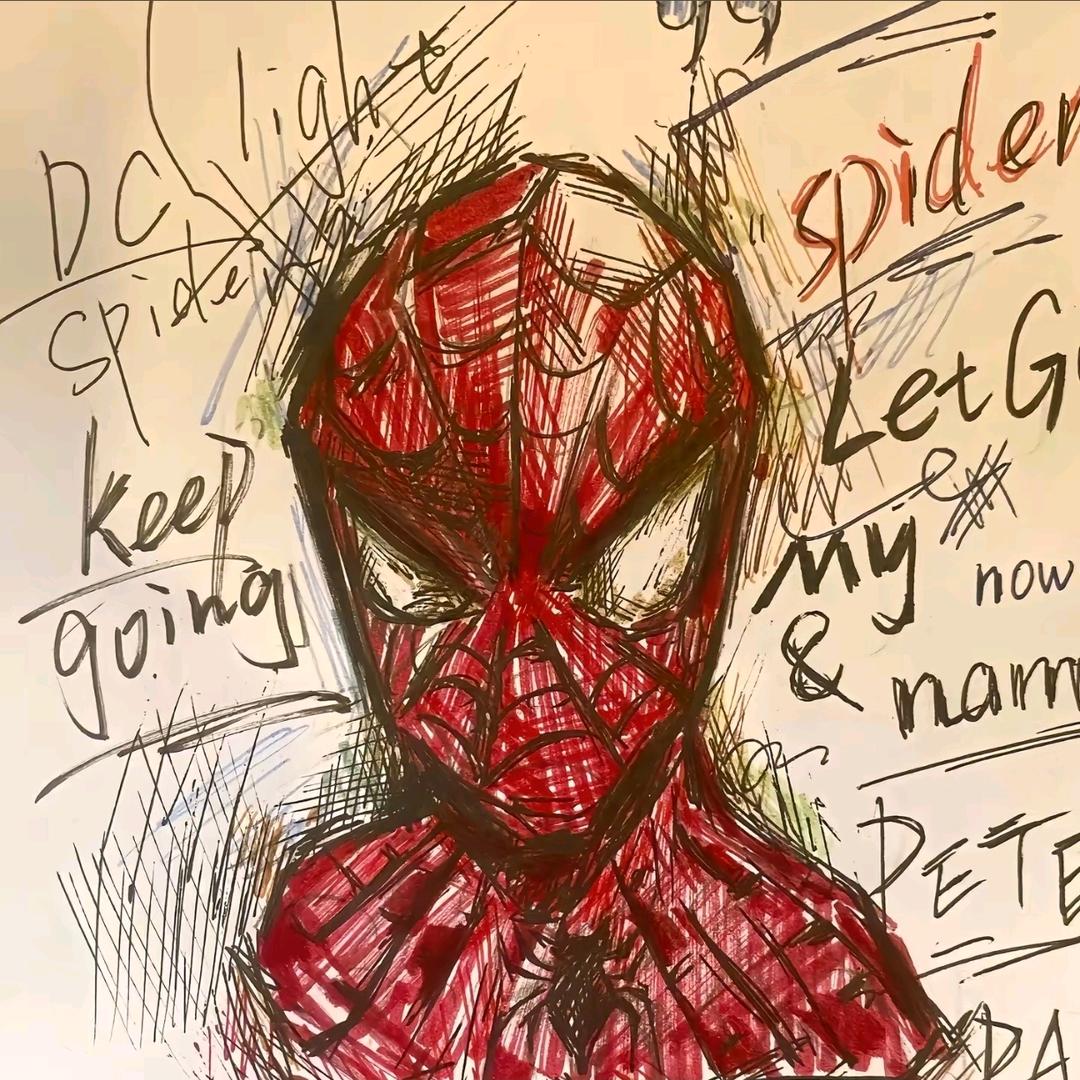 light
DC
spider
keep
going
spider
Let G
my
now
&
nam
PETE
DA